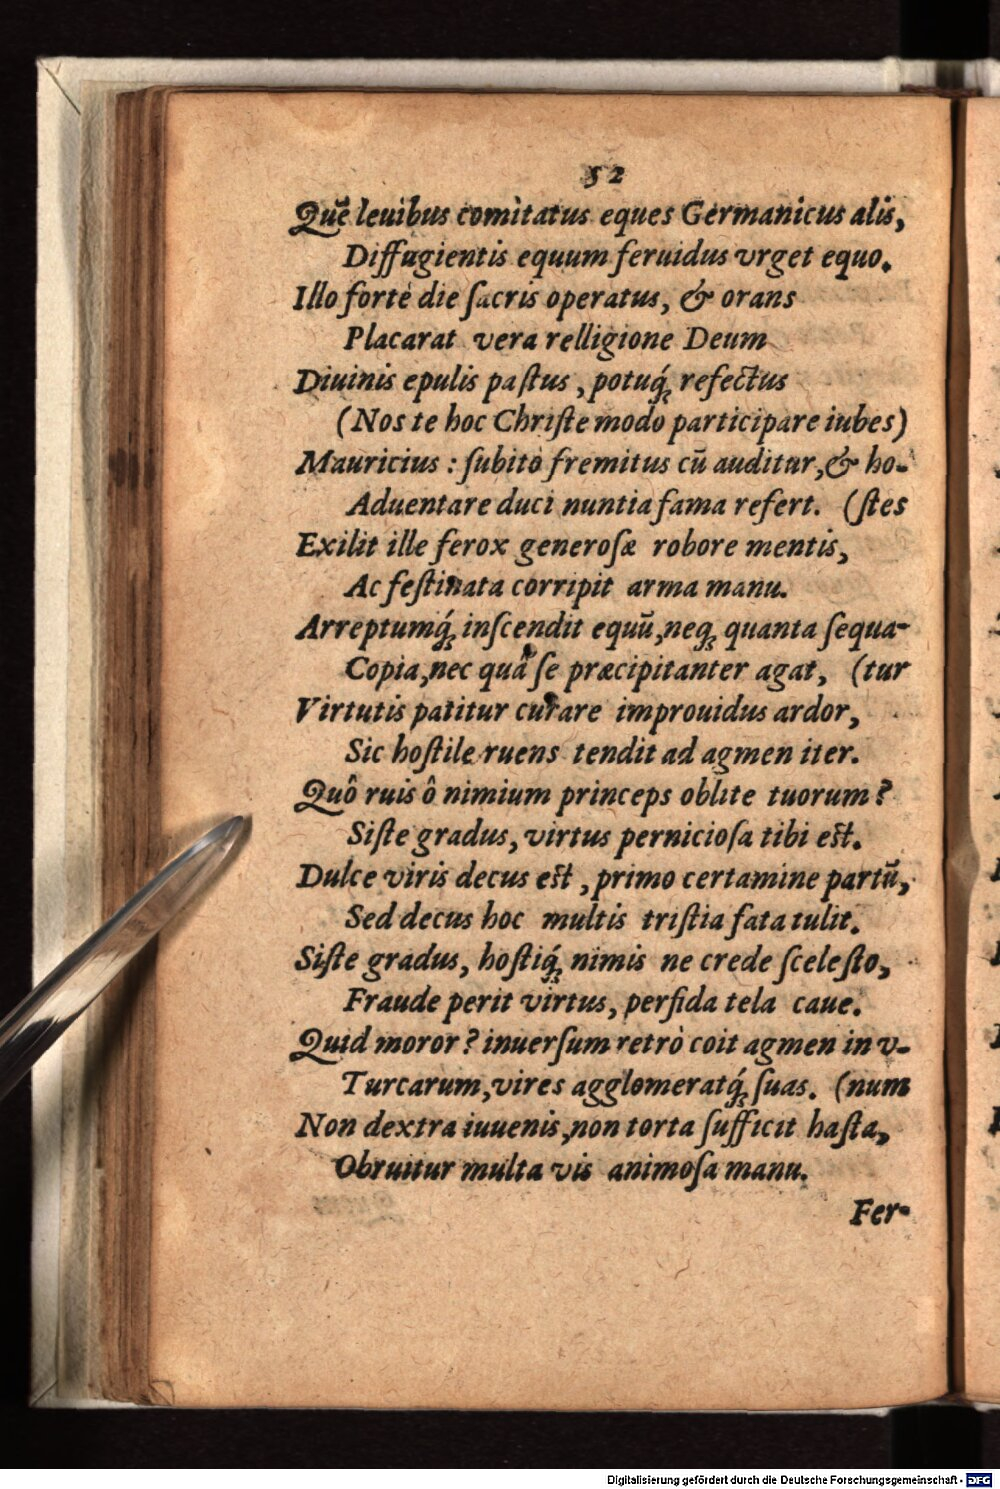 52
Quē leuibus comitatus eques Germanicus alis,
Diffugientis equum feruidus vrget equo.
Illo forte die ſacris operatus, & orans
Placarat vera relligione Deum
Diuinis epulis paſtus, potuq́ꝫ refectus
(Nos te hoc Chriſte modo participare iubes)
Mauricius: ſubito fremitus cū auditur, & ho-
Aduentare duci nuntia fama refert. (ſtes
Exilit ille ferox generoſæ robore mentis,
Ac feſtinata corripit arma manu.
Arreptumq́ꝫ inſcendit equū, neqꝫ quanta ſequa-
Copia, nec quā ſe præcipitanter agat, (tur
Virtutis patitur curare improuidus ardor,
Sic hoſtile ruens tendit ad agmen iter.
Quô ruis ô nimium princeps oblite tuorum?
Siſte gradus, virtus pernicioſa tibi eſt.
Dulce viris decus eſt, primo certamine partū,
Sed decus hoc multis triſtia fata tulit.
Siſte gradus, hoſtiq́ꝫ nimis ne crede ſceleſto,
Fraude perit virtus, perfida tela caue.
Quid moror? inuerſum retrò coit agmen in v-
Turcarum, vires agglomeratq́ꝫ ſuas. (num
Non dextra iuuenis, non torta ſufficit haſta,
Obruitur multa vis animoſa manu.
Fer-
Digitalisierung gefördert durch die Deutsche Forschungsgemeinschaft - DFG